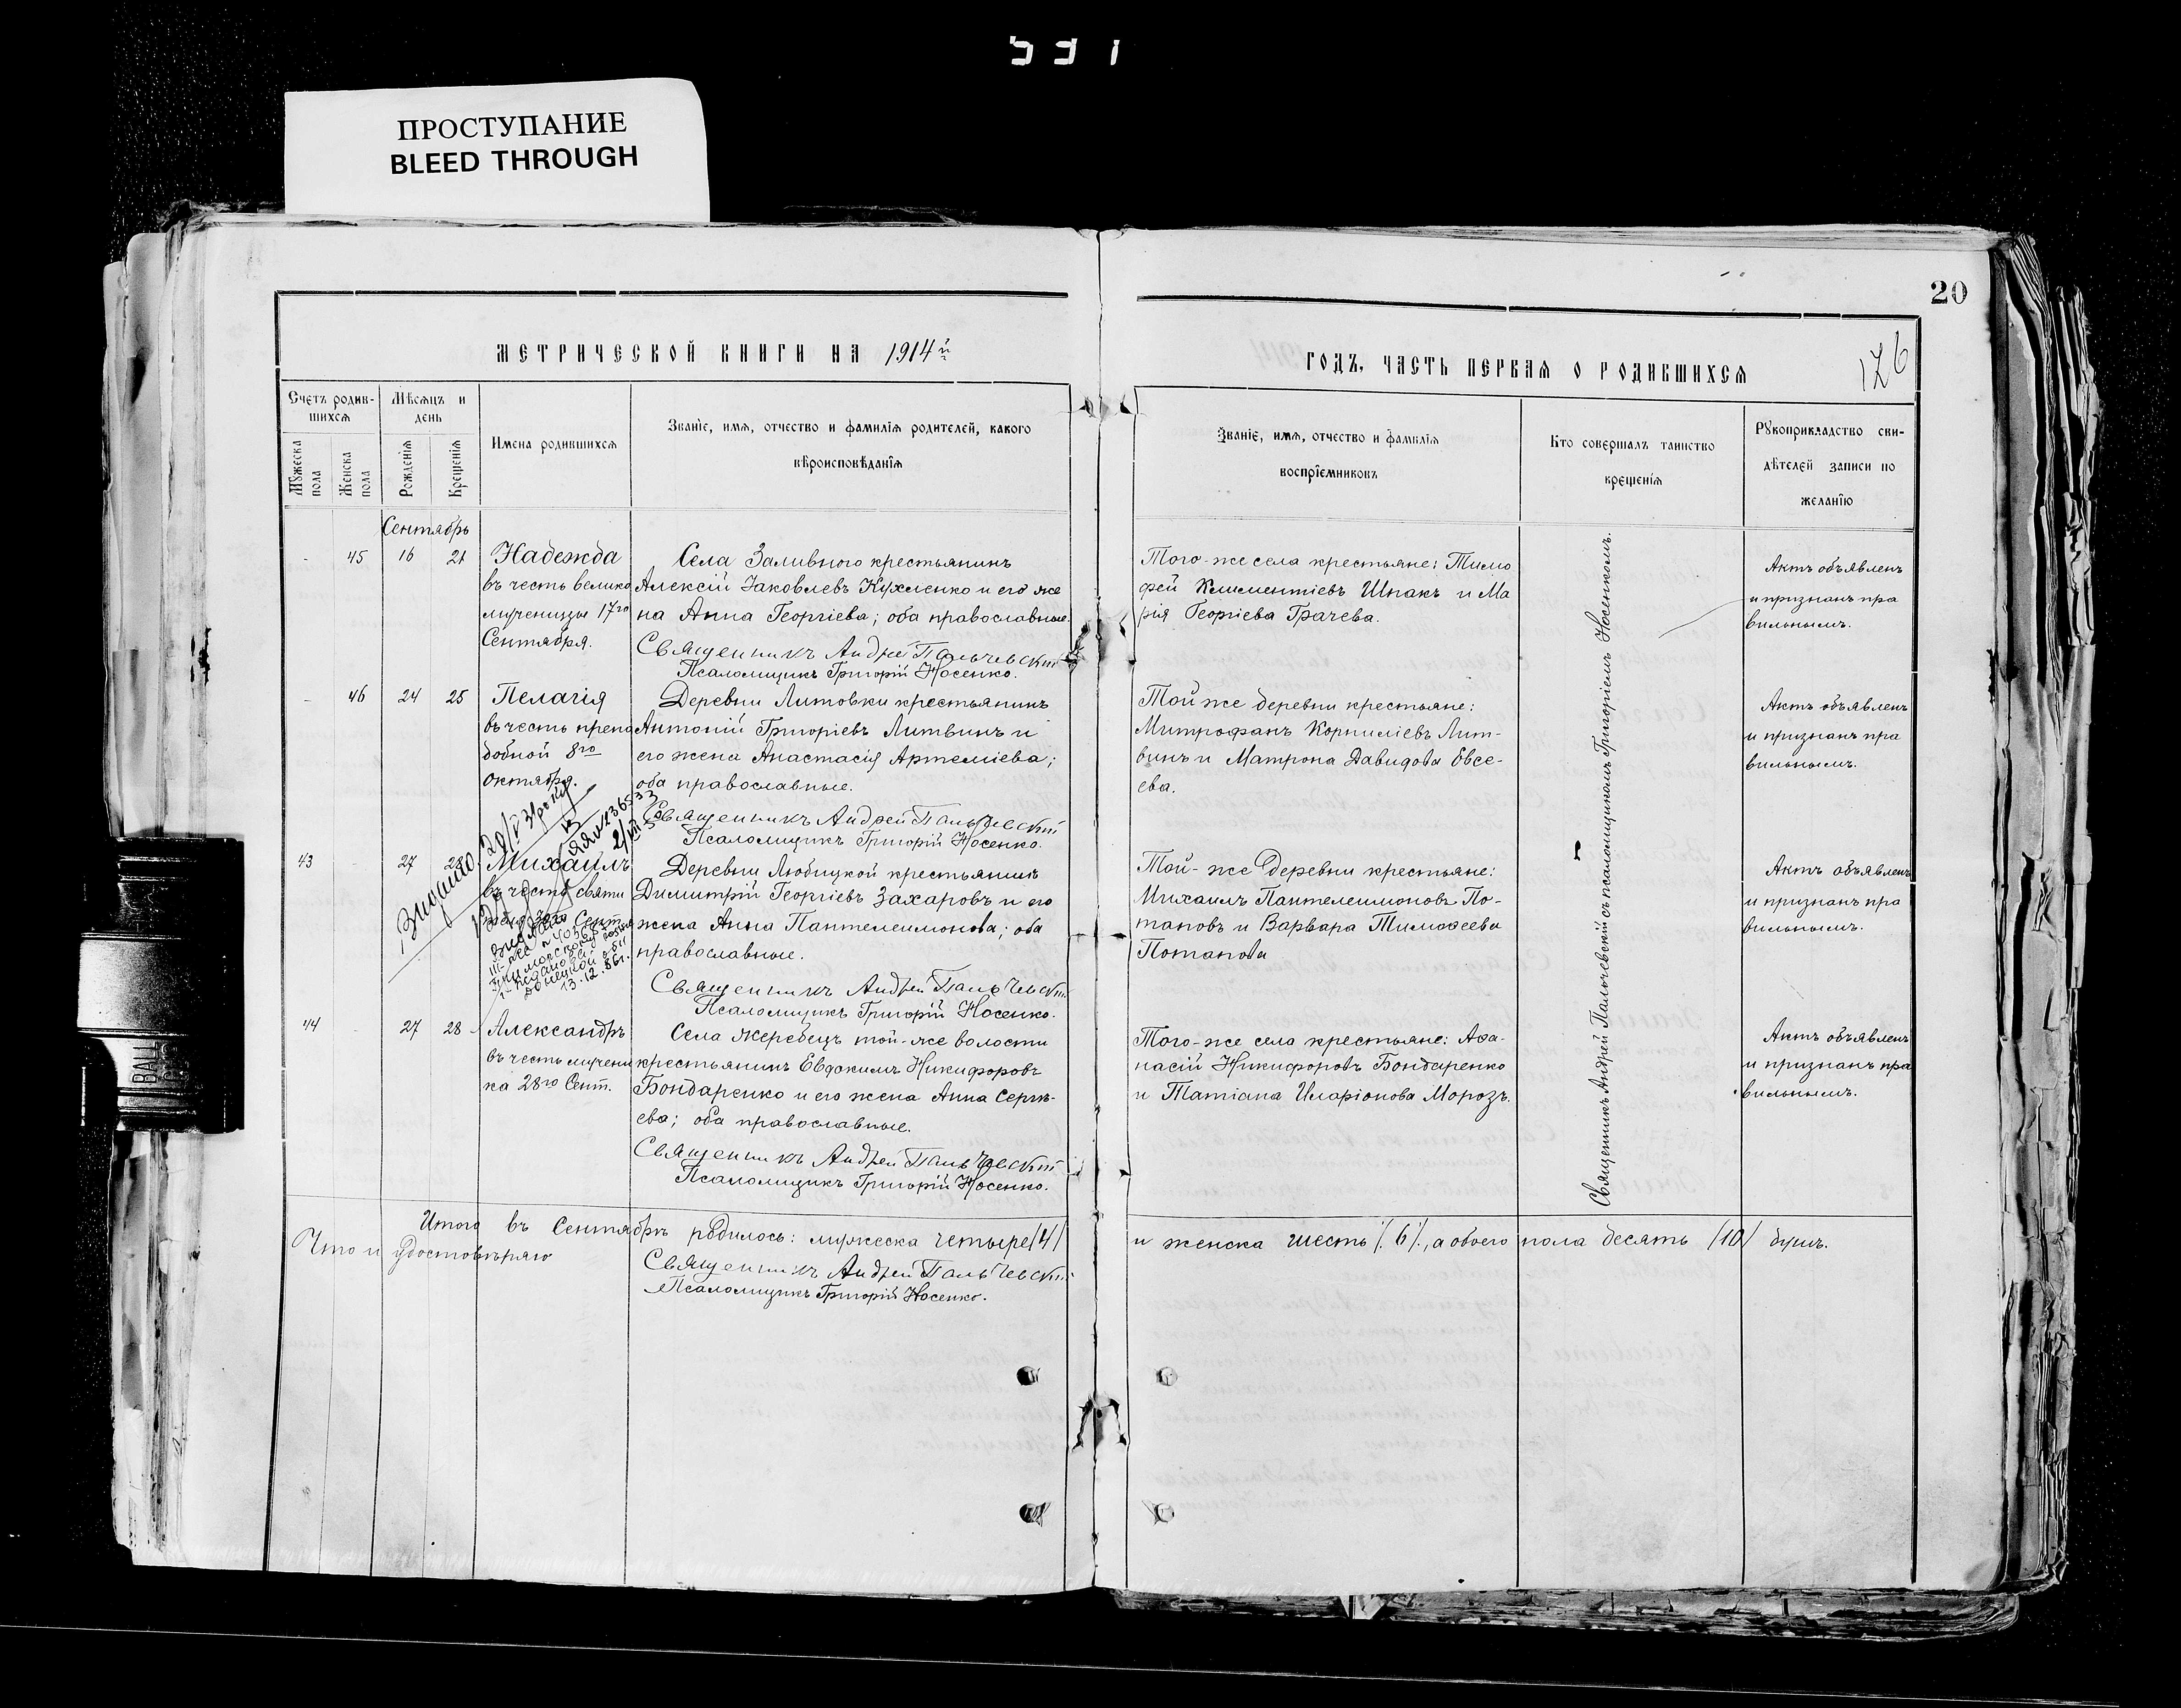 531
ПРОСТУПАНИЕ
BLEED THROUGH
20
МЕТРИЧЕСКОЙ КНИГИ НА 1914й
ГОДЪ, ЧАСТЬ ПЕРВАЯ О РОДИВШИХСЯ
126
Счетъ родив-
шихся
Мужеска
пола
Женска
пола
Мѣсяцъ и
день
Рожденїя
Крещенїя
Имена родившихся
Званїе, имя, отчество и фамилїя родителей, какого
вѣроисповѣданїя
Званїе, имя, отчество и фамилїя
воспрїемниковъ
Кто совершалъ таинство
крещенїя
Рукоприкладство сви-
дѣтелей записи по
желанїю
Сентябрь
- 45 16 21
Надежда
въ честь велико
мученицы 17го
Сентября.
Села Заливного крестьянинъ
Алексій Іаковлевъ Кухленко и его же
на Анна Георгіева; оба православные.
Священникъ Андрей Пальчевскій
Псаломщикъ Григорій Носенко.
Того-же села крестьяне: Тимо
фей Климентіевъ Шпакъ и Ма
рія Георгіева Грачева.
Актъ объявленъ
и признанъ пра
вильнымъ.
- 46 24 25
Пелагія
въ честь препо
добной 8го
Октября.
Деревни Литовки крестьянинъ
Антоній Григоріевъ Литвинъ и
его жена Анастасія Артеміева;
оба православные.
Священникъ Андрей Пальчевскій
Псаломщикъ Григорій Носенко.
Той же деревни крестьяне:
Митрофанъ Корниліевъ Лит-
винъ и Матрона Давидова Евсе-
ева.
Актъ объявленъ
и признанъ пра
вильнымъ.
43 - 27 28
Михаилъ
въ честь святи
30го Сент.
13.12.86г.
Деревни Любицкой крестьянинъ
Димитрій Георгіевъ Захаровъ и его
жена Анна Пантелеимонова; оба
православные.
Священникъ Андрей Пальчевскій
Псаломщикъ Григорій Носенко.
Той-же деревни крестьяне:
Михаилъ Пантелеимоновъ По-
таповъ и Варвара Тимоѳеева
Потапова
Актъ объявленъ
и признанъ пра
вильнымъ.
44 - 27 28
Александръ
въ честь мучени
ка 28го Сент.
Села Жеребецъ той-же волости
крестьянинъ Евдокимъ Никифоровъ
Бондаренко и его жена Анна Сергѣ-
ева; оба православные.
Священникъ Андрей Пальчевскій
Псаломщикъ Григорій Носенко.
Того-же села крестьяне: Аѳа-
насій Никифоровъ Бондаренко
и Татіана Иларіонова Морозъ.
Актъ объявленъ
и признанъ пра
вильнымъ.
Священникъ Андрей Пальчевскій съ псаломщикомъ Григоріемъ Носенкомъ.
Итого въ Сентябрѣ родилось: мужеска четыре /4/ и женска шесть /.6/., а обоего пола десять /10/ душъ.
Что и удостовѣряю
Священникъ Андрей Пальчевскій
Псаломщикъ Григорій Носенко.